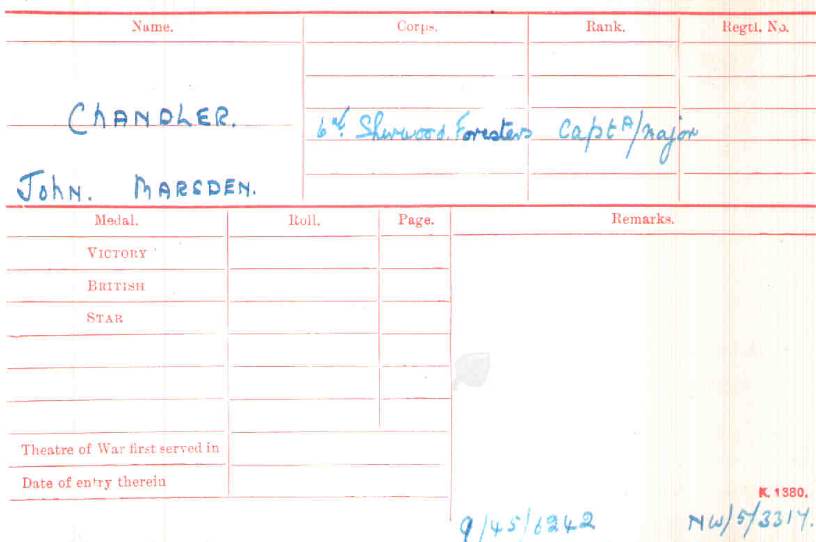 Name. Corps. Rank. Regtl. No.
CHANDLER. 6th Sherwood. Foresters Capt A/Major
John. MARSDEN.
Medal. Roll. Page. Remarks.
VICTORY
BRITISH
STAR
Theatre of War first served in
Date of entry therein
K. 1380.
9/45/6242 NW/5/3317.